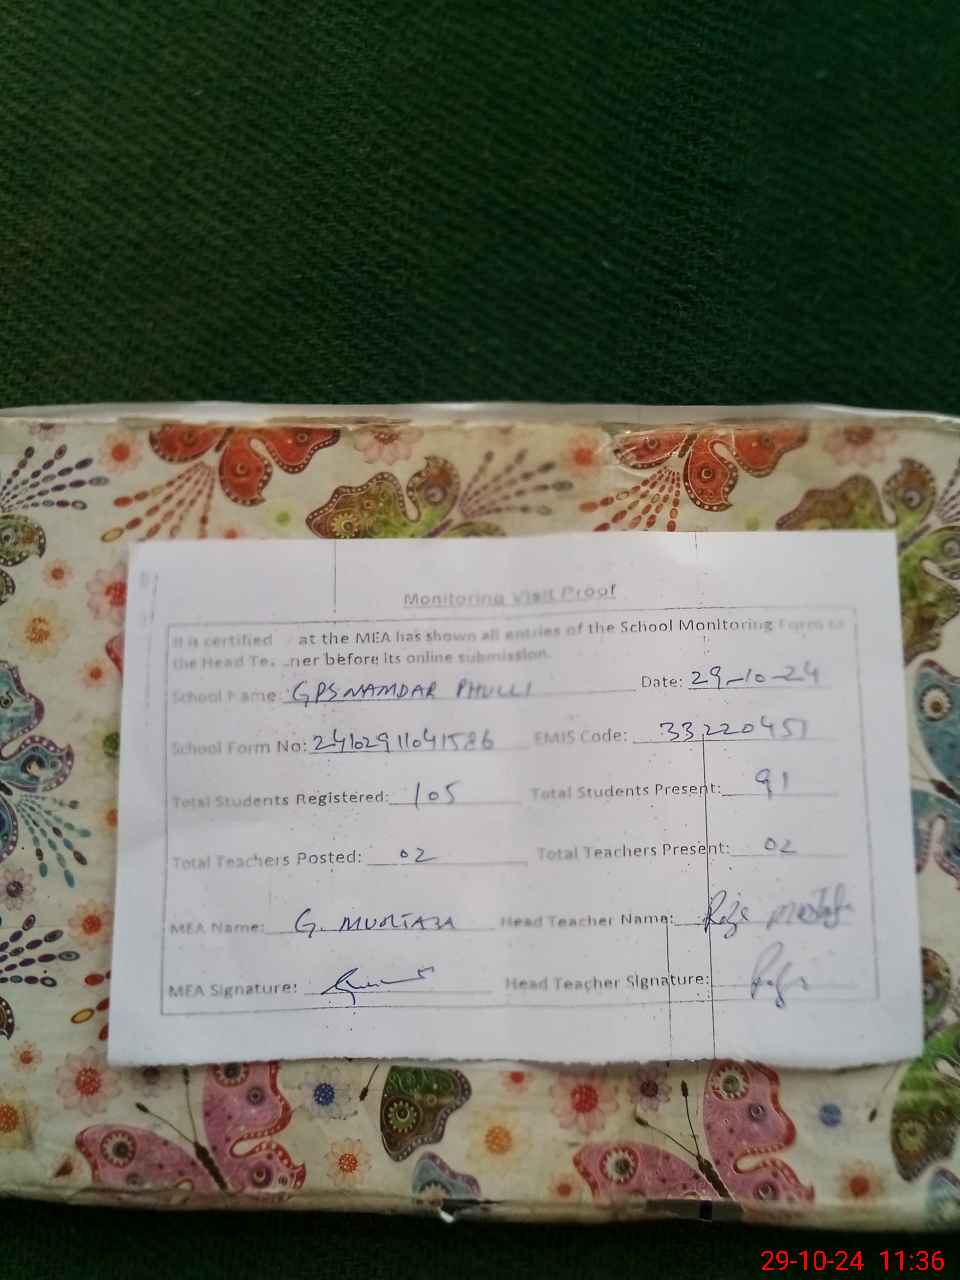 Monitoring Visit Proof
It is certified at the MEA has shown all entries of the School Monitoring Form to
the Head Te ner before its online submission.
School Name: GPS NAMDAR PHULLI Date: 29-10-24
School Form No: 24102911041586 EMIS Code: 33220451
Total Students Registered: 105 Total Students Present: 91
Total Teachers Posted: 02 Total Teachers Present: 02
MEA Name: G. MURTAZA Head Teacher Name:
MEA Signature: Head Teacher Signature:
29-10-24 11:36